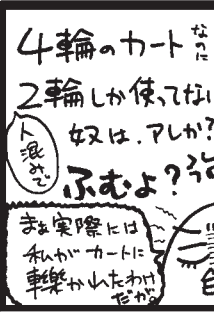 4輪のカートなのに
2輪しか使ってない
人混みで
奴は、アレか?
ふむよ?
まぁ実際には
私がカートに
轢かれたわけ
だが。